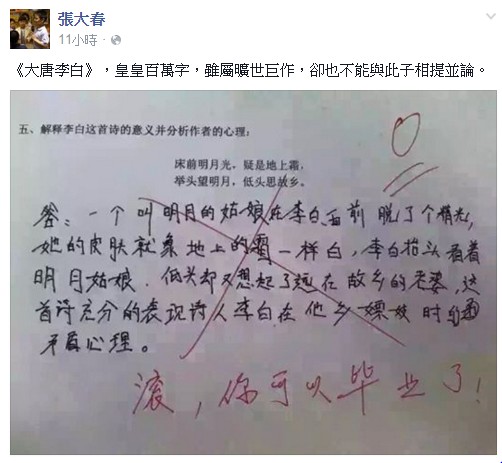 張大春
11小時 ·
《大唐李白》，皇皇百萬字，雖屬曠世巨作，卻也不能與此子相提並論。
五、解释李白这首诗的意义并分析作者的心理：
0
床前明月光，疑是地上霜，
举头望明月，低头思故乡。
答：一个叫明月的姑娘在李白面前脱了个精光，
她的皮肤就象地上的霜一样白，李白抬头看着
明月姑娘．低头却又想起了远在故乡的老婆，这
首诗充分的表现诗人李白在他乡嫖妓时的
矛盾心理。
滚，你可以毕业了！